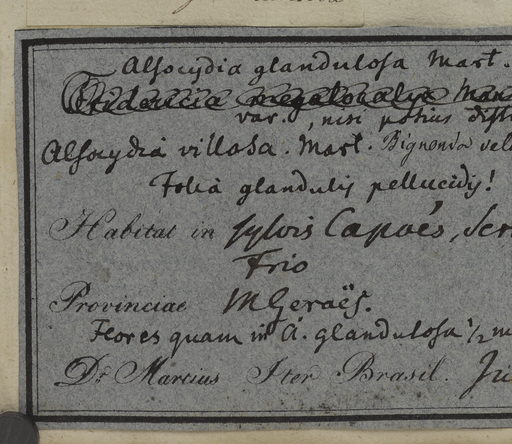 Alsocydia glandulosa Mart.
Fridericia megalocalyx Mart
var., nisi potius disti
Alsocydia villosa. Mart. Bignonia velu
Folia glandulis pellucidis!
Habitat in sylvis Capoës, Ser
Frio
Provinciae M Geraës.
Flores quam in A. glandulosa 1/2 m
Dr. Martius Iter Brasil.